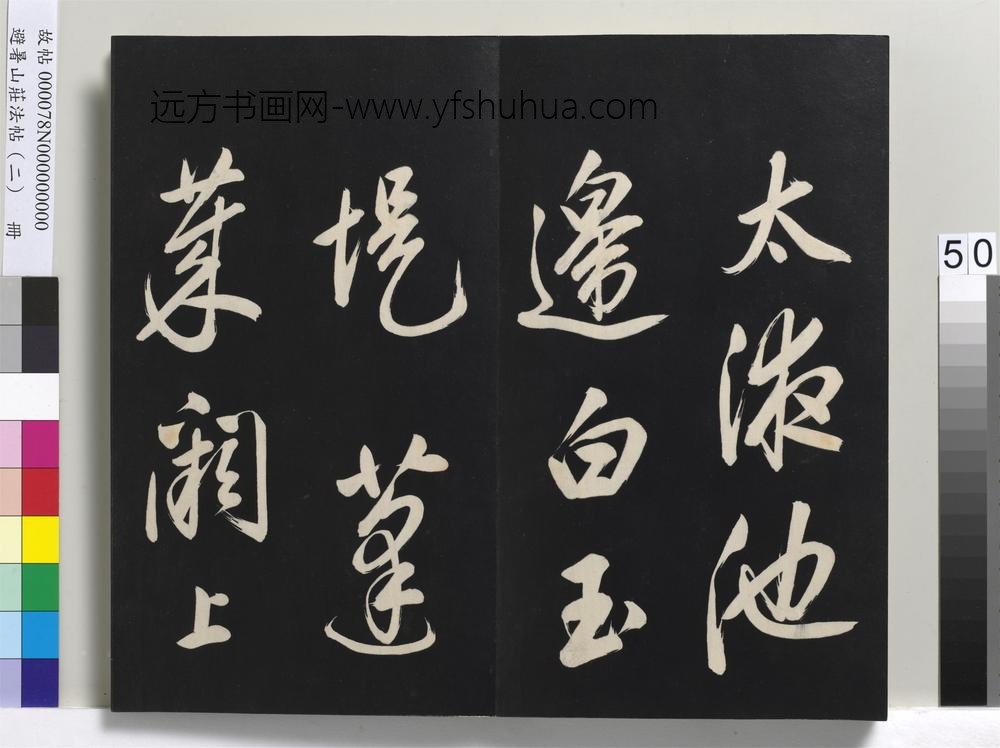 太液池
邊白玉
堤蓬
萊闕上
远方书画网-www.yfshuhua.com
故帖 000078N000000000
避暑山莊法帖（二） 冊
50